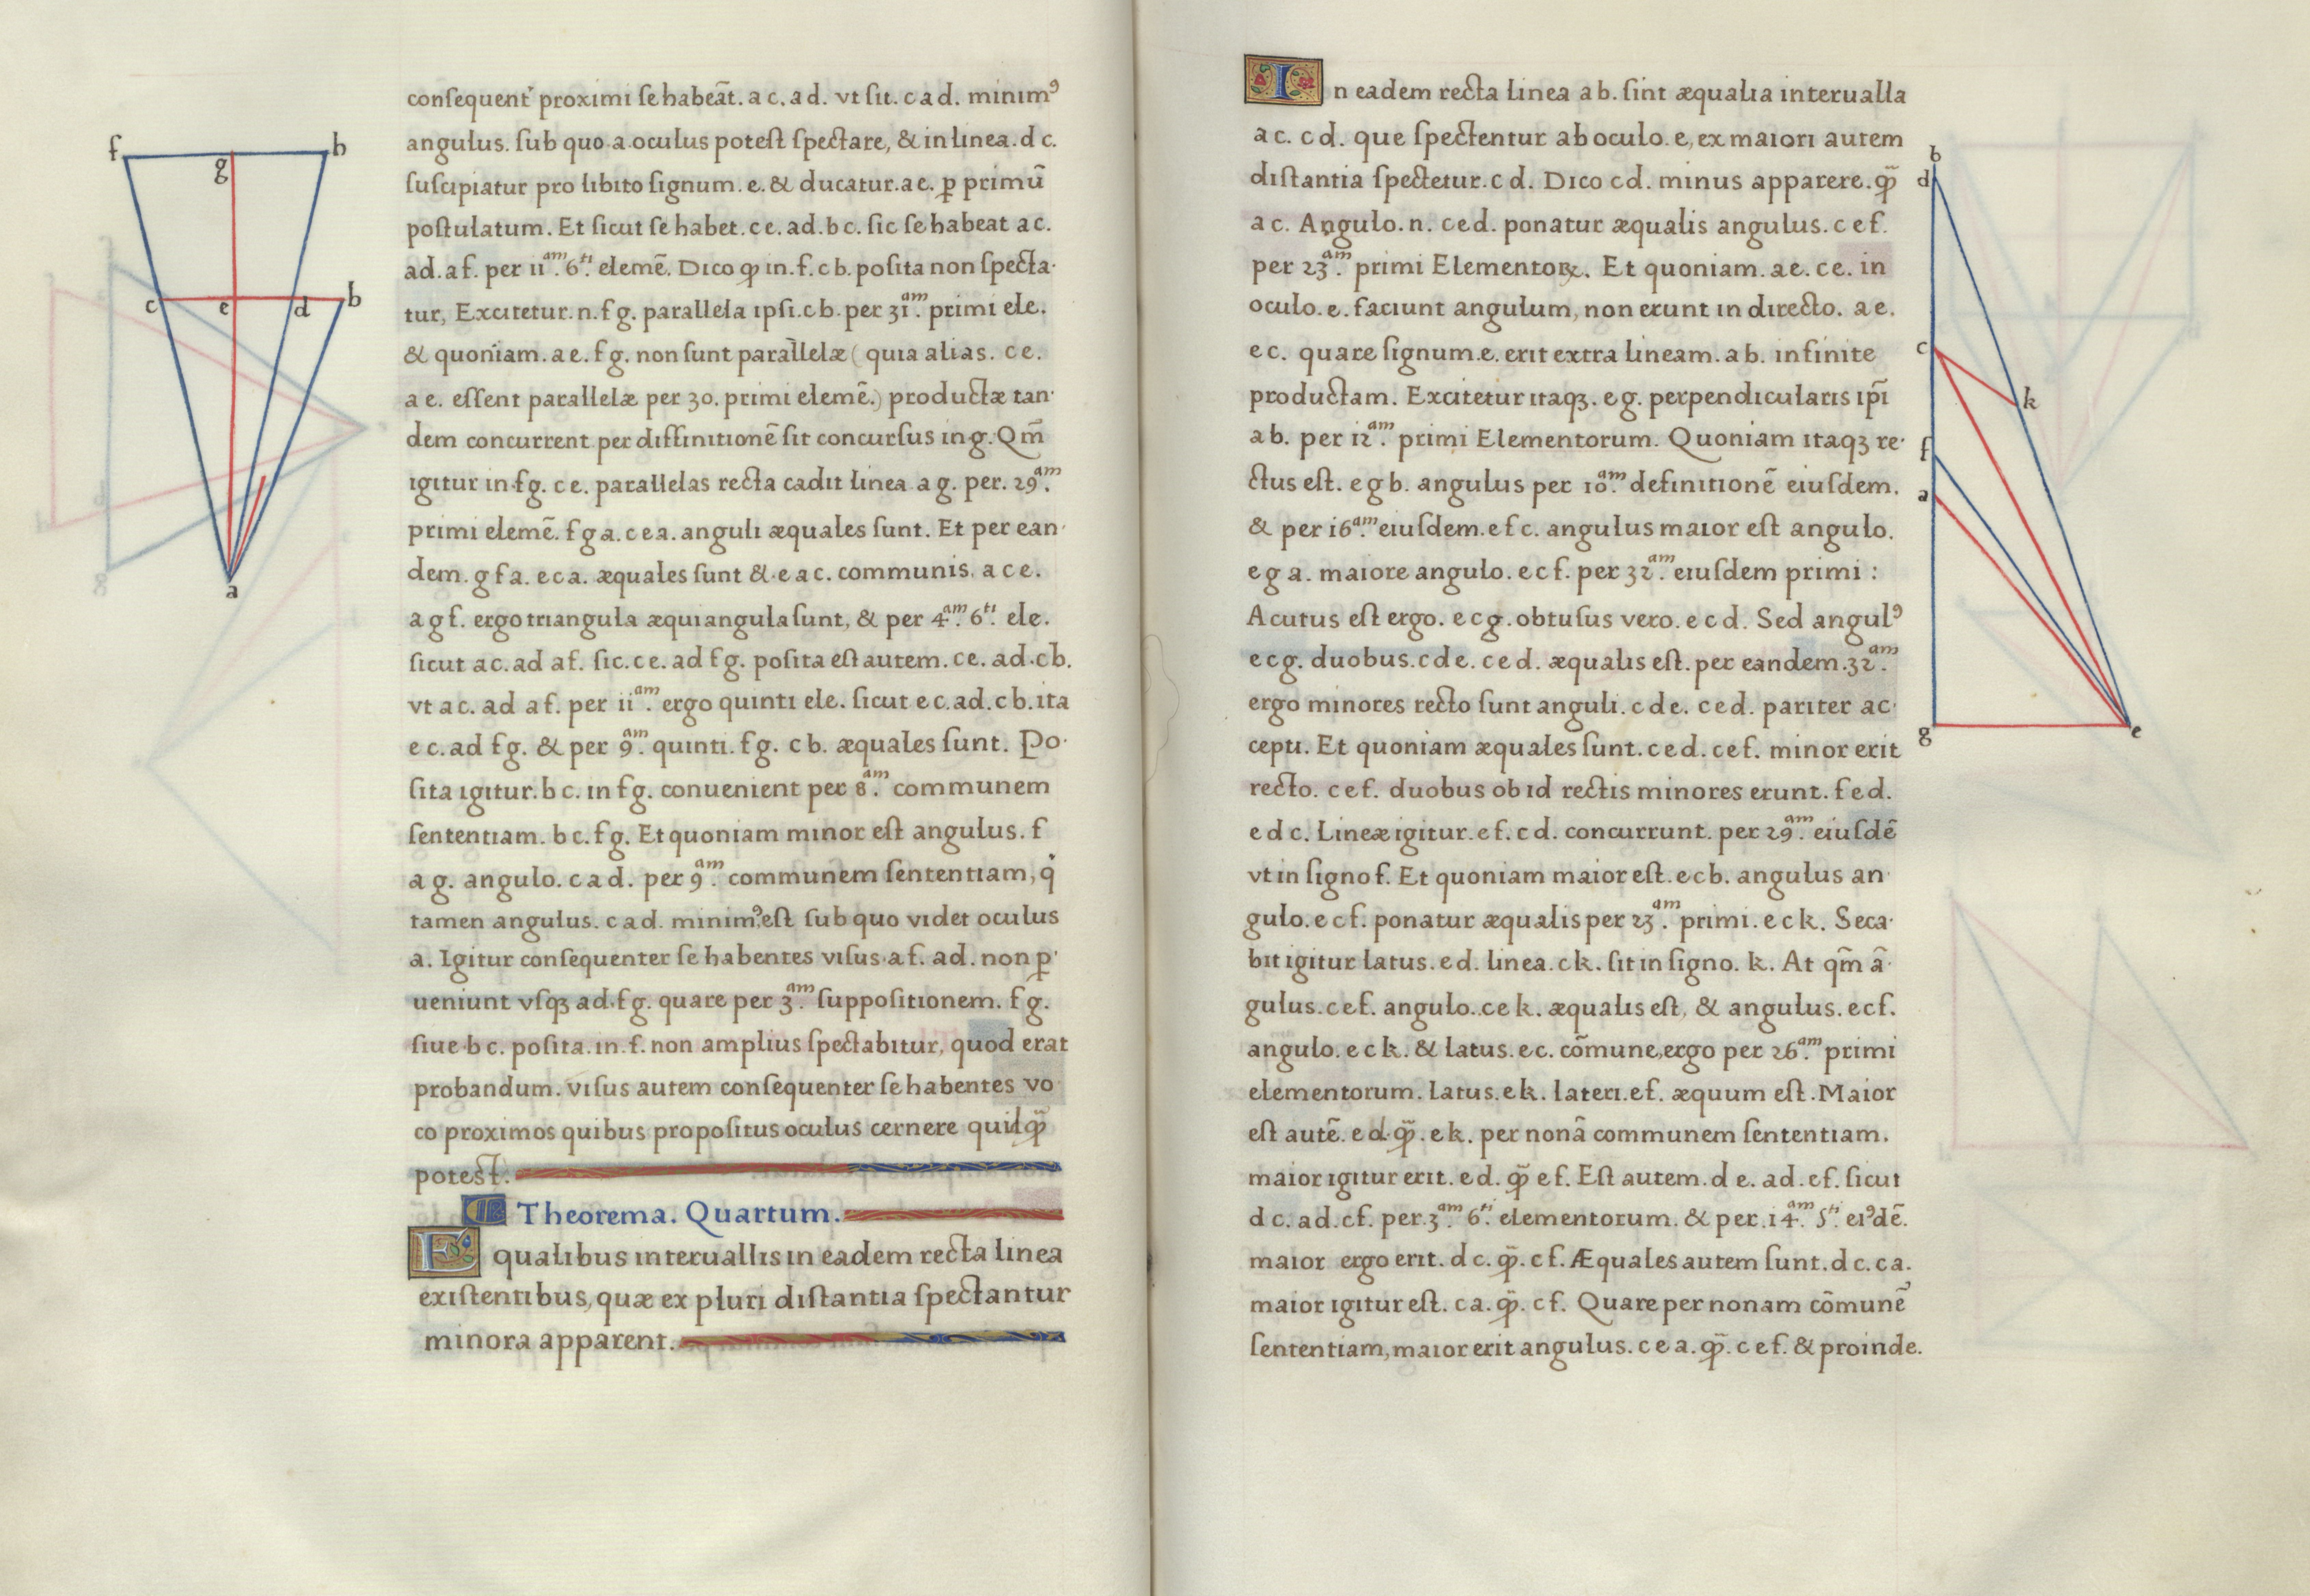 consequent᷒ proximi se habeãt. a c. a d. vt sit. c a d. minimꝰ
angulus. sub quo a oculus potest spectare, & in linea. d c.
suscipiatur pro libito signum. e. & ducatur. a e. ꝑ primũ
postulatum. Et sicut se habet. c e. ad. b c. sic se habeat a c.
ad. a f. per 11ᵃᵐ. 6ᵗⁱ. elemẽ. Dico ꝙ in. f. c b. posita non specta-
tur, Excitetur. n. f g. parallela ipsi. c b. per 31ᵃᵐ. primi ele.
& quoniam. a e. f g. non sunt parallelæ ( quia alias. c e.
a e. essent parallelæ per 30. primi elemẽ.) productæ tan-
dem concurrent per diffinitionẽ sit concursus in g. Qm̃
igitur in f g. c e. parallelas recta cadit linea a g. per. 29ᵃᵐ.
primi elemẽ. f g a. c e a. anguli æquales sunt. Et per ean-
dem. g f a. e c a. æquales sunt & e a c. communis. a c e.
a g f. ergo triangula æquiangula sunt, & per 4ᵃᵐ. 6ᵗⁱ. ele.
sicut a c. ad a f. sic. c e. ad f g. posita est autem. c e. ad. c b.
vt a c. ad a f. per 11ᵃᵐ. ergo quinti ele. sicut e c. ad. c b. ita
e c. ad f g. & per 9ᵃᵐ. quinti. f g. c b. æquales sunt. Po-
sita igitur. b c. in f g. conuenient per 8ᵃᵐ. communem
sententiam. b c. f g. Et quoniam minor est angulus. f
a g. angulo. c a d. per 9ᵃᵐ. communem sententiam, q̇
tamen angulus. c a d. minimꝰ est sub quo videt oculus
a. Igitur consequenter se habentes visus a f. a d. non ꝑ-
ueniunt vsqꝫ ad f g. quare per 3ᵃᵐ. suppositionem. f g.
siue b c. posita. in. f. non amplius spectabitur, quod erat
probandum. visus autem consequenter se habentes vo-
co proximos quibus propositus oculus cernere quidꝙ̃
potest.
Theorema. Quartum.
Equalibus interuallis in eadem recta linea
existentibus, quæ ex pluri distantia spectantur
minora apparent.
f
g
h
c
e
d
b
a
In eadem recta linea a b. sint æqualia interualla
a c. c d. que spectentur ab oculo. e, ex maiori autem
distantia spectetur. c d. Dico c d. minus apparere. ꝙ̃
a c. Angulo. n. c e d. ponatur æqualis angulus. c e f.
per 23ᵃᵐ. primi Elementoꝝ. Et quoniam. a e. c e. in
oculo. e. faciunt angulum, non erunt in directo. a e.
e c. quare signum. e. erit extra lineam. a b. infinite
productam. Excitetur itaqꝫ. e g. perpendicularis ip̃i
a b. per 12ᵃᵐ. primi Elementorum. Quoniam itaqꝫ re-
ctus est. e g b. angulus per 10ᵃᵐ. definitionẽ eiusdem.
& per 16ᵃᵐ. eiusdem. e f c. angulus maior est angulo.
e g a. maiore angulo. e c f. per 32ᵃᵐ. eiusdem primi :
Acutus est ergo. e c g. obtusus vero. e c d. Sed angulꝰ
e c g. duobus. c d e. c e d. æqualis est. per eandem. 32ᵃᵐ.
ergo minores recto sunt anguli. c d e. c e d. pariter ac-
cepti. Et quoniam æquales sunt. c e d. c e f. minor erit
recto. c e f. duobus ob id rectis minores erunt. f e d.
e d c. Lineæ igitur. e f. c d. concurrunt. per 29ᵃᵐ. eiusdẽ
vt in signo f. Et quoniam maior est. e c b. angulus an-
gulo. e c f. ponatur æqualis per 23ᵃᵐ. primi. e c k. Seca-
bit igitur latus. e d. linea. c k. sit in signo. k. At qm̃ ã-
gulus. c e f. angulo. c e k. æqualis est, & angulus. e c f.
angulo. e c k. & latus. e c. cõmune, ergo per 26ᵃᵐ. primi
elementorum. latus. e k. lateri. e f. æquum est. Maior
est autẽ. e d. ꝙ̃. e k. per nonã communem sententiam.
maior igitur erit. e d. ꝙ̃ e f. Est autem. d e. ad. e f. sicut
d c. ad. c f. per. 3ᵃᵐ. 6ᵗⁱ. elementorum. & per. 14ᵃᵐ. 5ᵗⁱ. eiꝰdẽ.
maior ergo erit. d c. ꝙ̃. c f. Æquales autem sunt. d c. c a.
maior igitur est. c a. ꝙ̃. c f. Quare per nonam cõmunẽ
sententiam, maior erit angulus. c e a. ꝙ̃. c e f. & proinde.
b
d
c
k
f
a
g
e